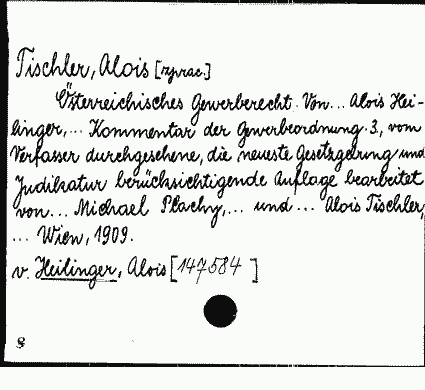 Tischler, Alois [oprac.]
Österreichisches Gewerberecht. Von... Alois Hei-
linger,... Kommentar der Gewerbeordnung. 3., vom
Verfasser durchgesehene, die neueste Gesetzgebung und
Judikatur berücksichtigende Auflage bearbeitet
von... Michael Plachy,... und... Alois Tischler,
... Wien, 1909.
v. Heilinger, Alois [147584]